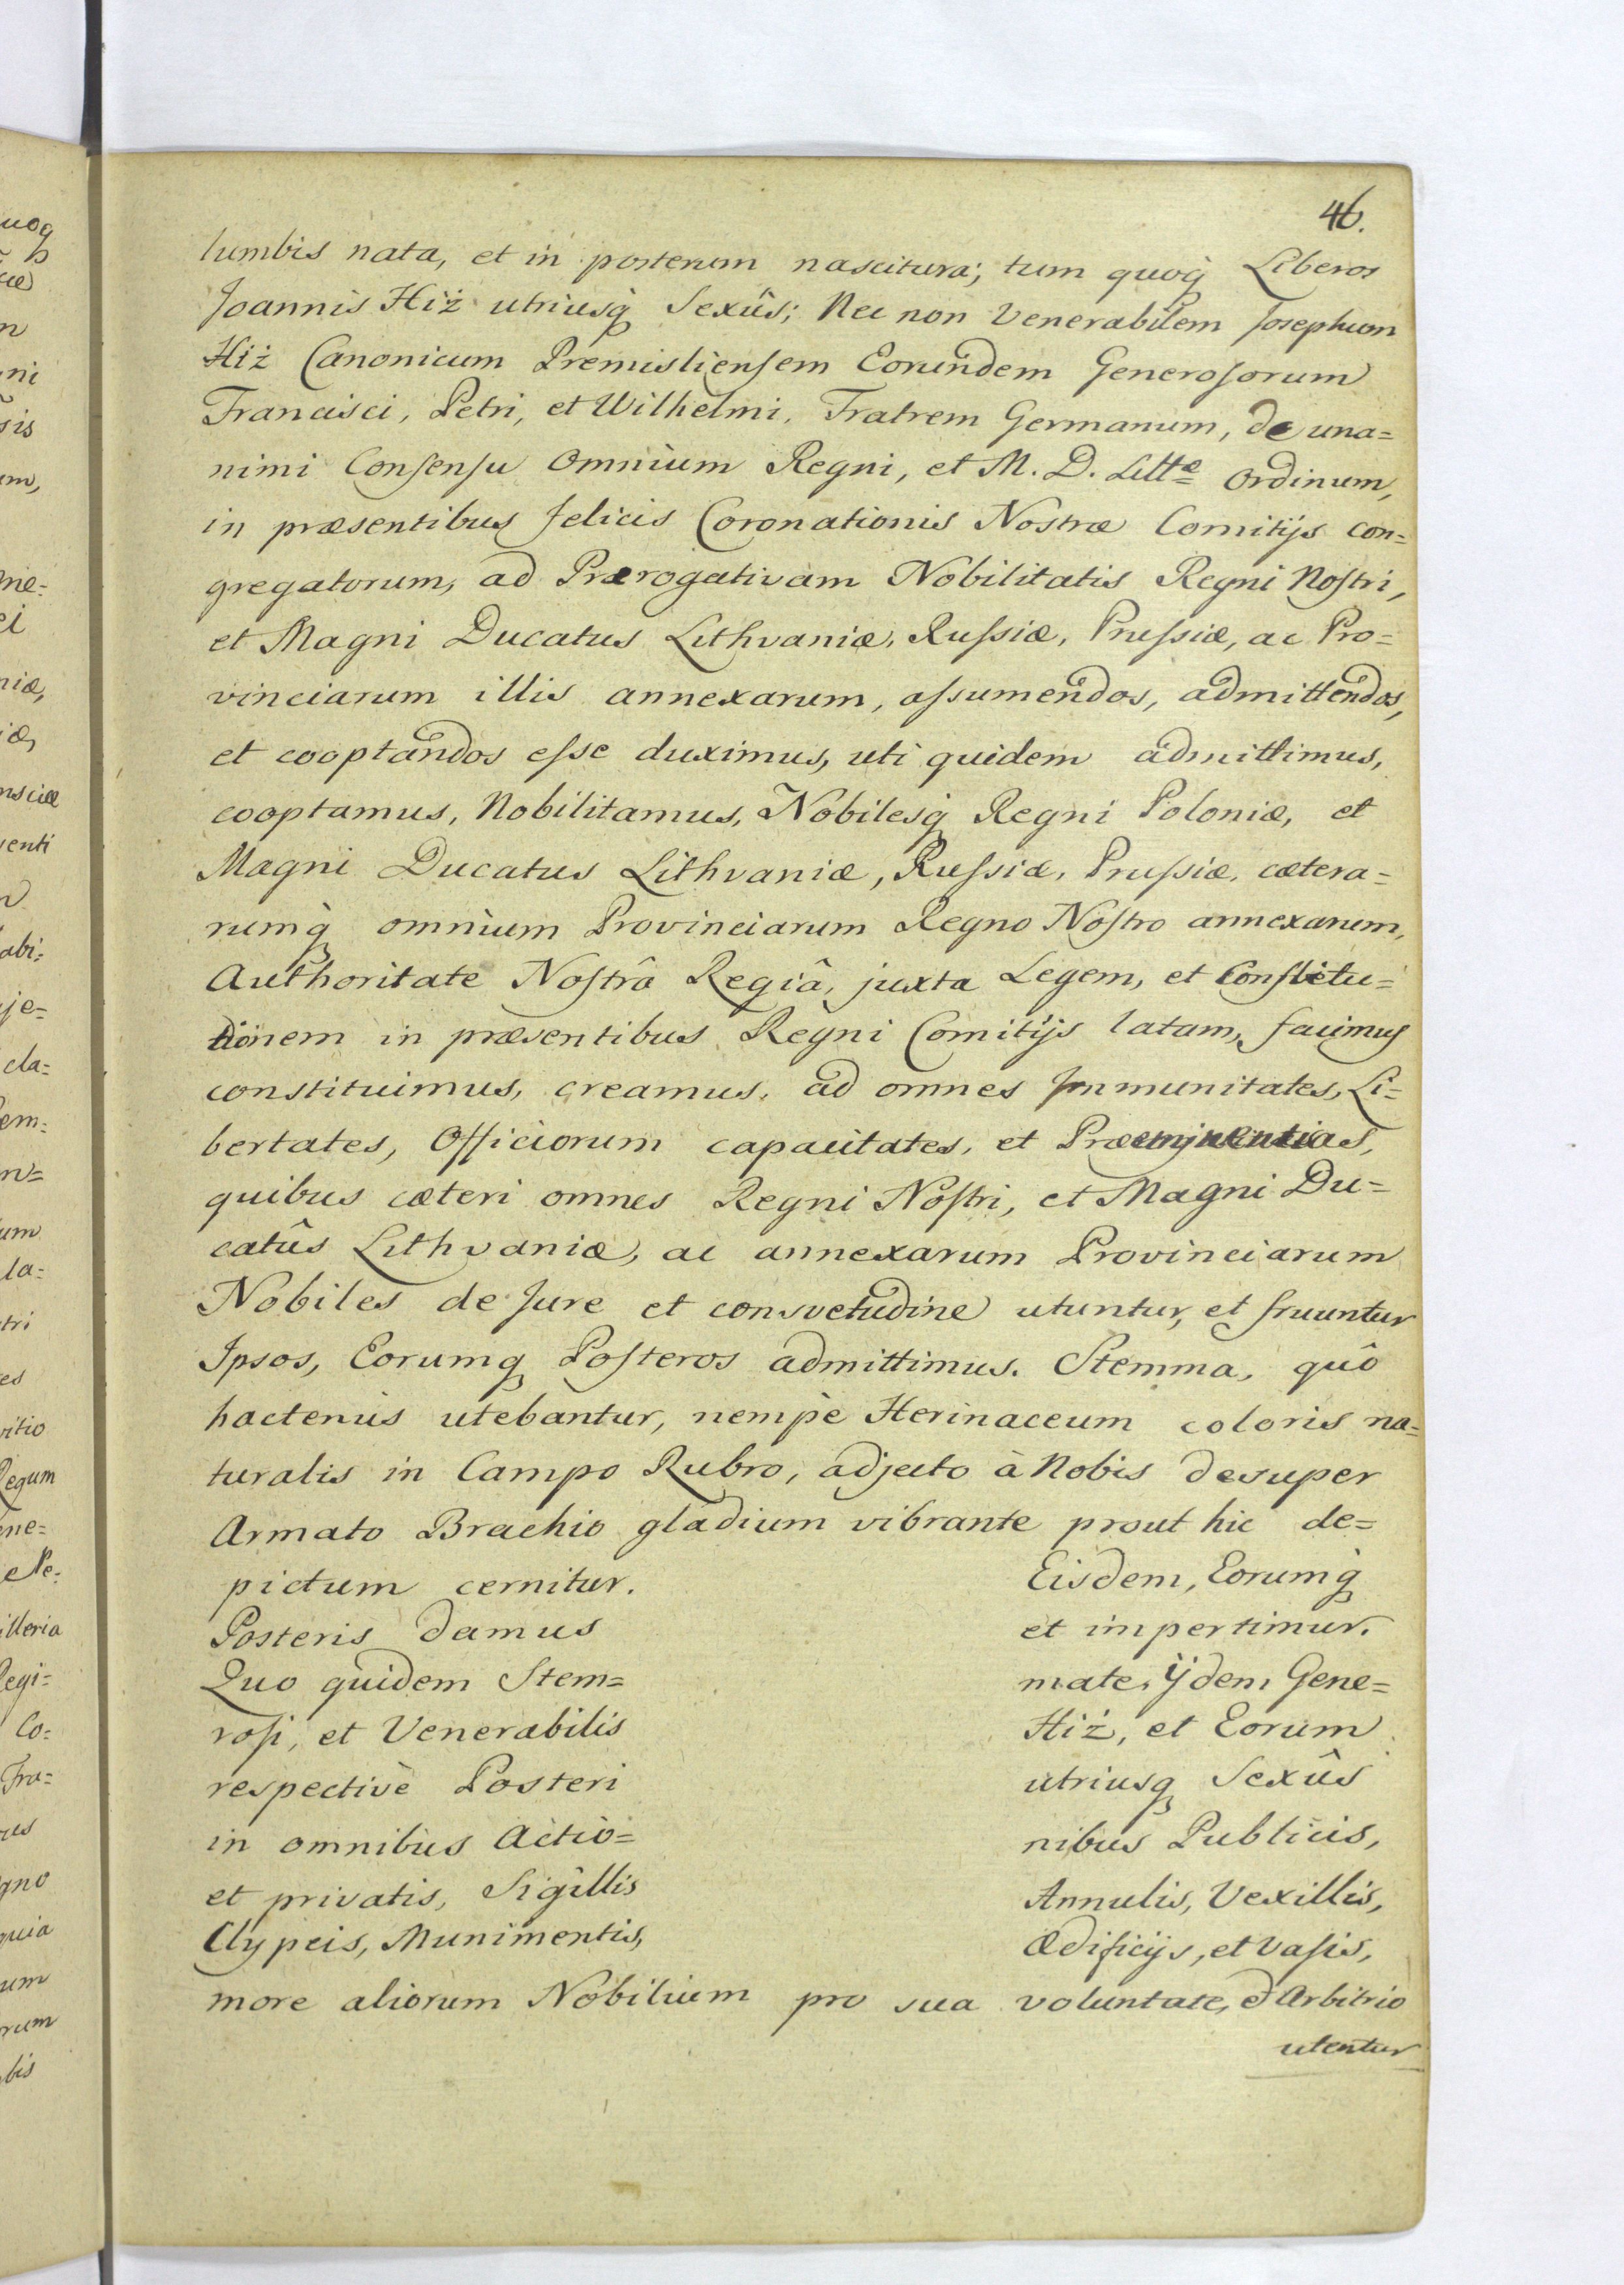 46.
lumbis nata, et in posterum nascitura; tum quoq̃ Liberos
Joannis Hiż utriusq̃ Sexûs; Nec non Venerabilem Josephum
Hiż Canonicum Premisliensem Eorundem Generosorum
Francisci, Petri, et Wilhelmi, Fratrem Germanum, de una=
nimi Consensu Omnium Regni, et M. D. Littæ Ordinum,
in præsentibus felicis Coronationis Nostræ Comitijs con=
gregatorum, ad Prærogativam Nobilitatis Regni Nostri,
et Magni Ducatus Lithvaniæ, Russiæ, Prussiæ, ac Pro=
vinciarum illis annexarum, assumendos, admittendos,
et cooptandos esse duximus, uti quidem admittimus,
cooptamus, Nobilitamus, Nobilesq̃ Regni Poloniæ, et
Magni Ducatus Lithvaniæ, Russiæ, Prussiæ, cætera=
rumq̃ omnium Provinciarum Regno Nostro annexarum,
Authoritate Nostrâ Regiâ, juxta Legem, et Constitu=
tionem in præsentibus Regni Comitijs latam, facimus
constituimus, creamus, ad omnes Immunitates, Li=
bertates, Officiorum capacitates, et Præeminentias,
quibus cæteri omnes Regni Nostri, et Magni Du=
catûs Lithvaniæ, ac annexarum Provinciarum
Nobiles de Jure et consvetudine utuntur, et fruuntur
Ipsos, Eorumq̃ Posteros admittimus. Stemma, quô
hactenùs utebantur, nempè Herinaceum coloris na=
turalis in Campo Rubro, adjecto à Nobis desuper
Armato Brachio gladium vibrante prout hic de=
pictum cernitur. Eisdem, Eorumq̃
Posteris damus et impertimur.
Quo quidem Stem= mate, ijdem Gene=
rosi, et Venerabilis Hiż, et Eorum
respectivè Posteri utriusq̃ Sexûs
in omnibus Actio= nibus Publicis,
et privatis, Sigillis Annulis, Vexillis,
Clypeis, Munimentis, Ædificijs, et Vasis,
more aliorum Nobilium pro sua voluntate, & Arbitrio
utentur